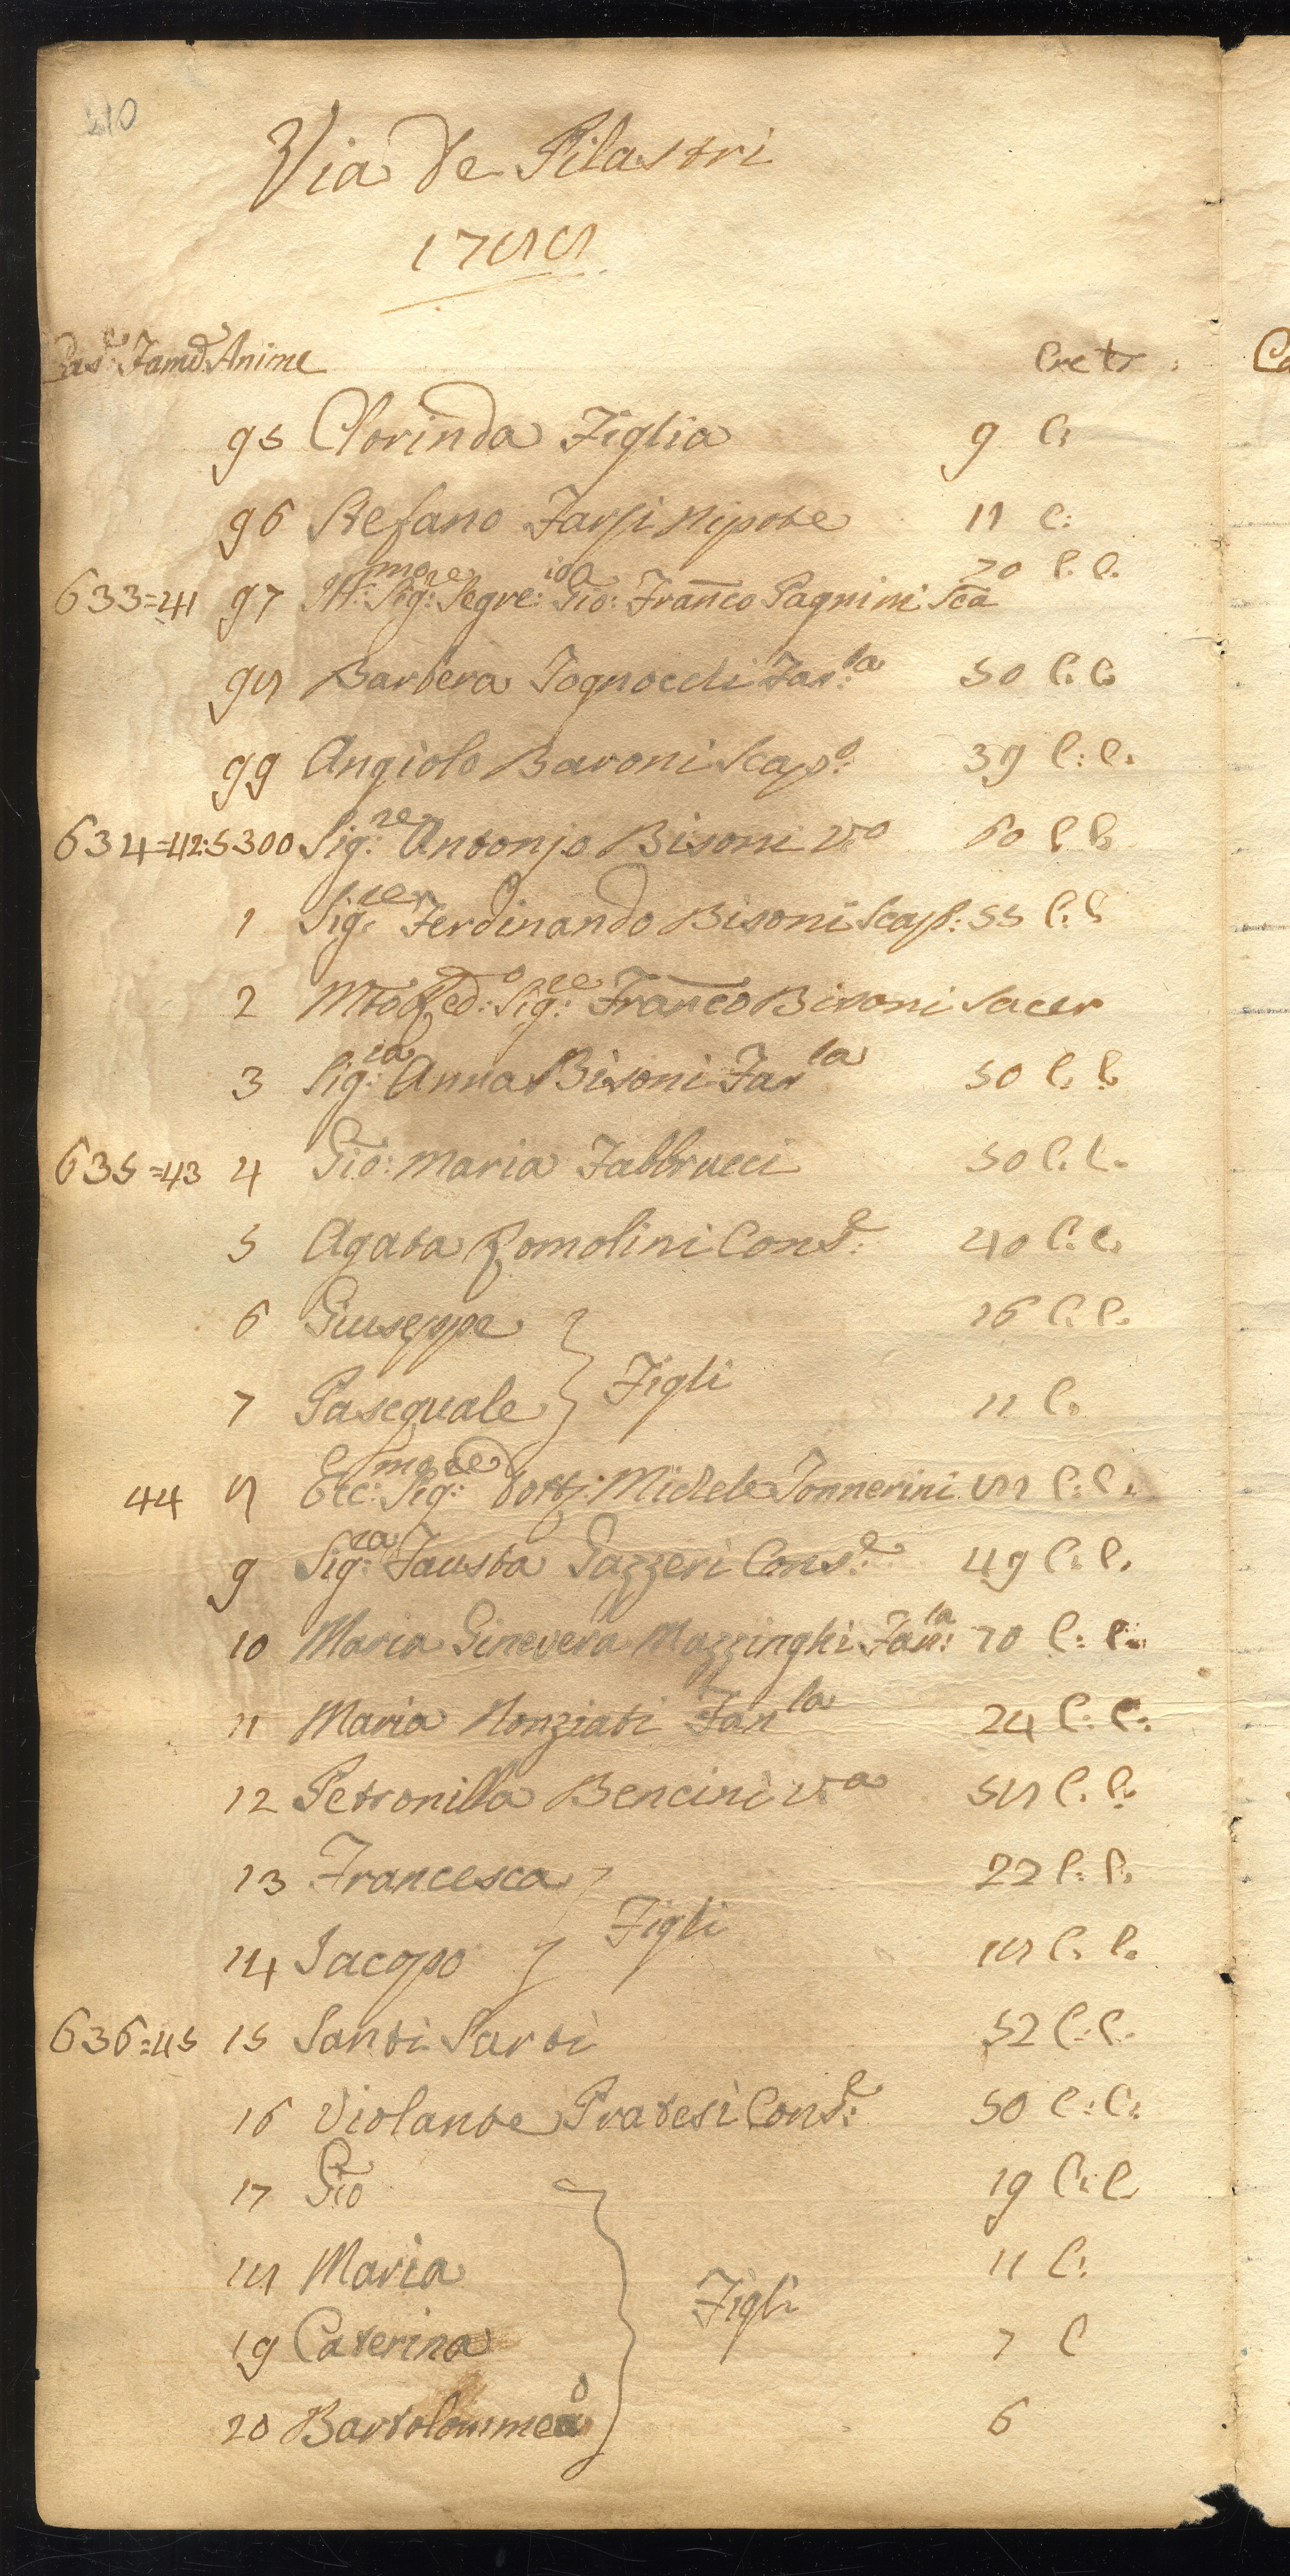 210
Via de Pilastri
1788
Case: Famē: Anime Ere tr:
95 Clorinda Figlia 9 C:
96 Stefano Tarsi Nipote 11 C:
633=41 97 Ill:mo Sig:re Segre:rio Gio: Franco Pagnini Sca 70 C. C.
98 Barbera Fognocchi Fan:la 50 C. C.
99 Angiolo Baroni Scap:o 39 C: C.
634=42:5300 Sig:re Antonio Bisoni V:o 60 C C.
1 Sig:re Ferdinando Bisoni Scap: 55 C. C
2 Mto Red:o Sig:re Franco Bisoni Sacer
3 Sig:ra Anna Bisoni Fan la 50 C. C.
635=43 4 Gio: Maria Fabbrucci 50 C. C.
5 Agata Romolini Cons:e 40 C. C.
6 Giuseppe 16 C. C.
Figli
7 Pasequale 11 C.
44 8 Ecc:mo Sig:re Dott: Michele Tonnerini 58 C: C.
9 Sig:ra Fausta Gazzeri Cons:e 49 C. C.
10 Maria Ginevera Mazzinghi Fan:la 70 C: C.
11 Maria Nonziati Fan la 24 C: C:
12 Petronilla Bencini V.a 58 C. C.
13 Francesca 22 C: C.
Figli
14 Jacopo 18 C. C.
636=45 15 Santi Sarti 52 C: C.
16 Violante Pratesi Cons:e 50 C: C:
17 Gio 19 C: C
18 Maria 11 C:
Figli
19 Caterina 7 C
20 Bartolommeo 6